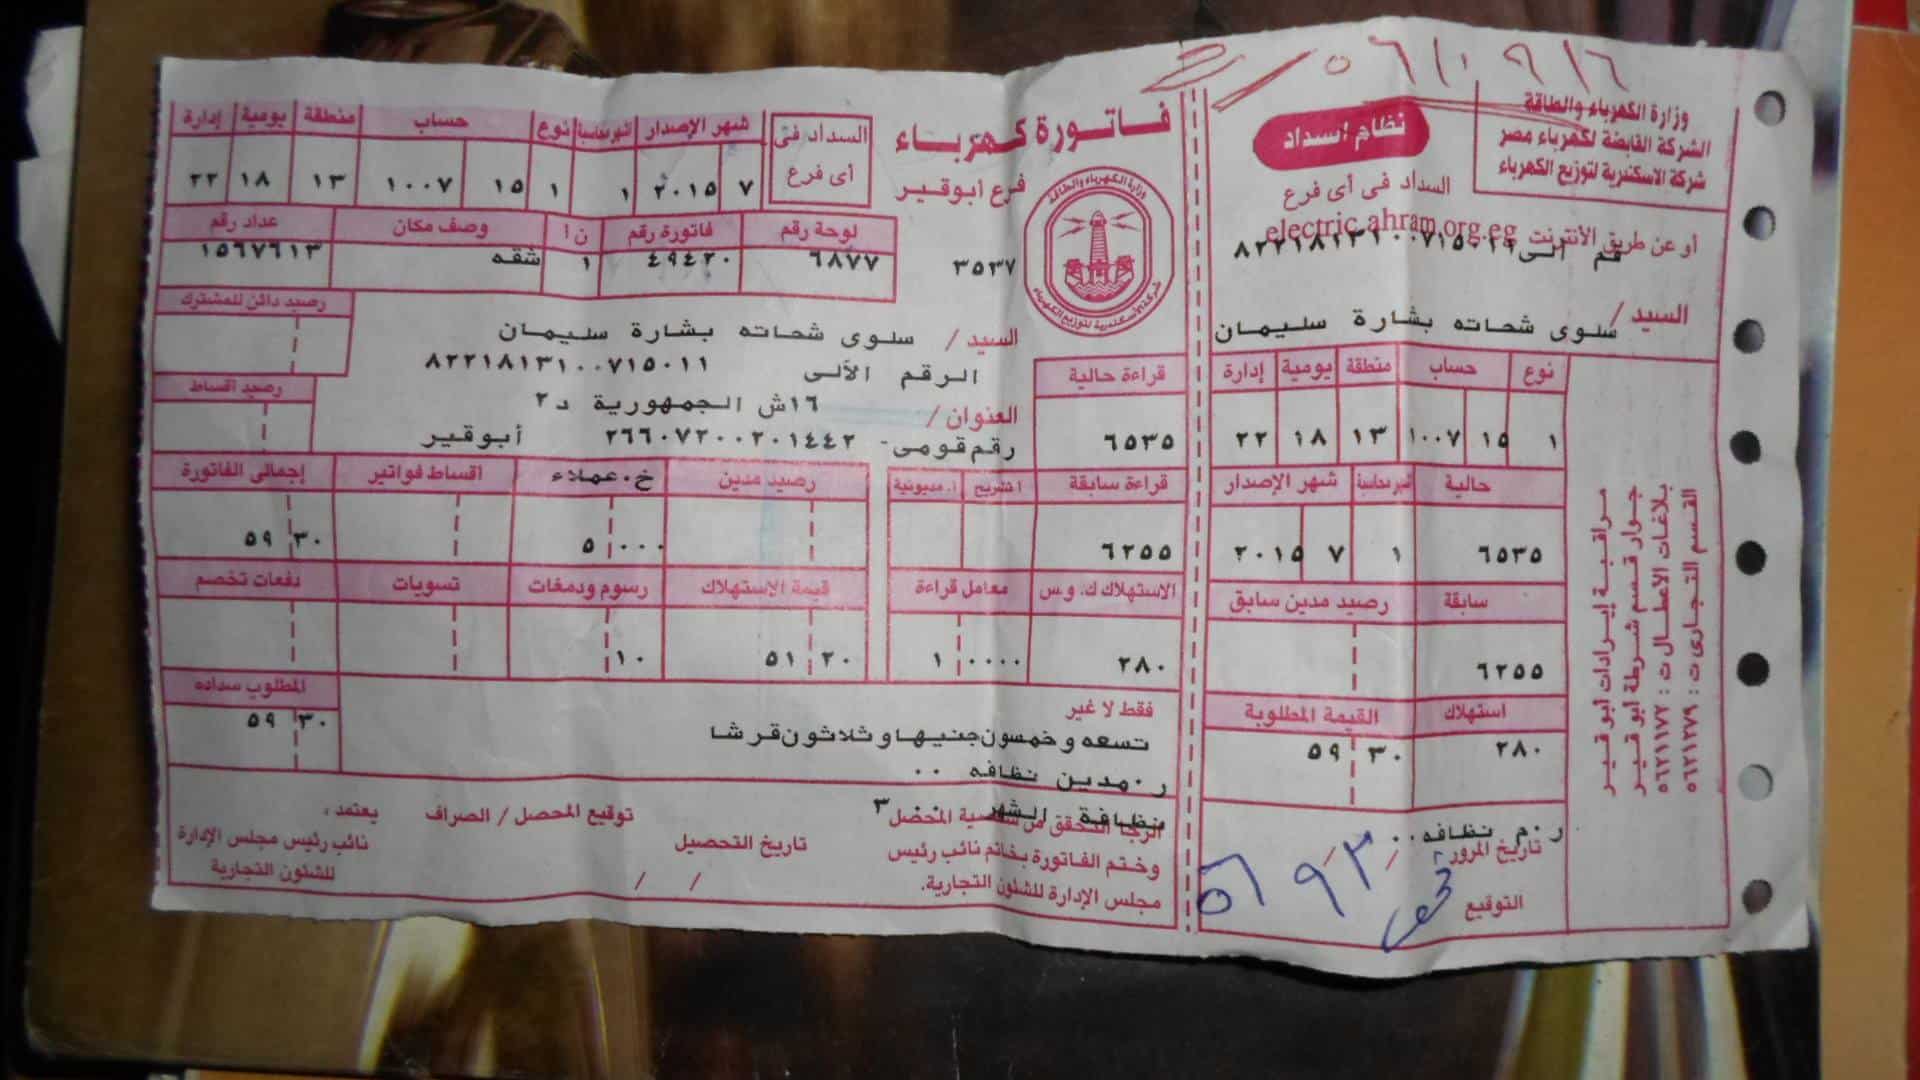 وزارة الكهرباء والطاقة
الشركة القابضة لكهرباء مصر
شركة الاسكندرية لتوزيع الكهرباء
نظام اسداد
السداد فى أى فرع
أو عن طريق الأنترنت electric.ahram.org.eg
السيد / سلوى شحاته بشارة سليمان
نوع حساب منطقة يومية إدارة
١ ١٥ ١٠٠٧ ١٣ ١٨ ٢٢
حالية شهر الإصدار
٦٥٣٥ ١ ٧ ٢٠١٥
سابقة رصيد مدين سابق
٦٢٥٥
استهلاك القيمة المطلوبة
٢٨٠ ٥٩ ٣٠
ر.م نظافه ٠٠
تاريخ المرور
التوقيع
مراقبة إيرادات ابو قير
جوار قسم شرطة ابو قير
بلاغات الأعطال ت : ٥٦٢١١٧٢
القسم التجارى ت : ٥٦٢١٢٧٩
فاتورة كهرباء
فرع ابوقير
وزارة الكهرباء والطاقة
شركة الاسكندرية لتوزيع الكهرباء
٣٥٣٧
السداد فى
أى فرع
شهر الإصدار نوع حساب منطقة يومية إدارة
٧ ٢٠١٥ ١ ١ ١٥ ١٠٠٧ ١٣ ١٨ ٢٢
لوحة رقم فاتورة رقم ن أ وصف مكان عداد رقم
٦٨٧٧ ٤٩٤٢٠ ١ شقه ١٥٦٧٦١٣
رصيد دائن للمشترك
السيد / سلوى شحاته بشارة سليمان
الرقم الألى ٨٢٢١٨١٣١٠٠٧١٥٠١١
رصيد اقساط
العنوان / ١٦ش الجمهورية د٢
رقم قومى- ٢٦٦٠٧٢٠٠٢٠١٤٤٢ أبوقير
قراءة حالية
٦٥٣٥
قراءة سابقة رصيد مدين خ.عملاء اقساط فواتير إجمالى الفاتورة
٦٢٥٥ ٥ ٠٠٠ ٥٩ ٣٠
الاستهلاك ك.و.س معامل قراءة قيمة الاستهلاك رسوم ودمغات تسويات دفعات تخصم
٢٨٠ ١ ٠٠٠٠ ٥١ ٢٠ ١٠
المطلوب سداده
٥٩ ٣٠
فقط لا غير
تسعه وخمسون جنيها وثلاثون قرشا
ر.مدين نظافه ٠٠
نظافة الشهر ٣
الرجا التحقق من شخصية المحصل
وختم الفاتورة بخاتم نائب رئيس
مجلس الإدارة للشئون التجارية.
تاريخ التحصيل / /
توقيع المحصل / الصراف
يعتمد،
نائب رئيس مجلس الإدارة
للشئون التجارية